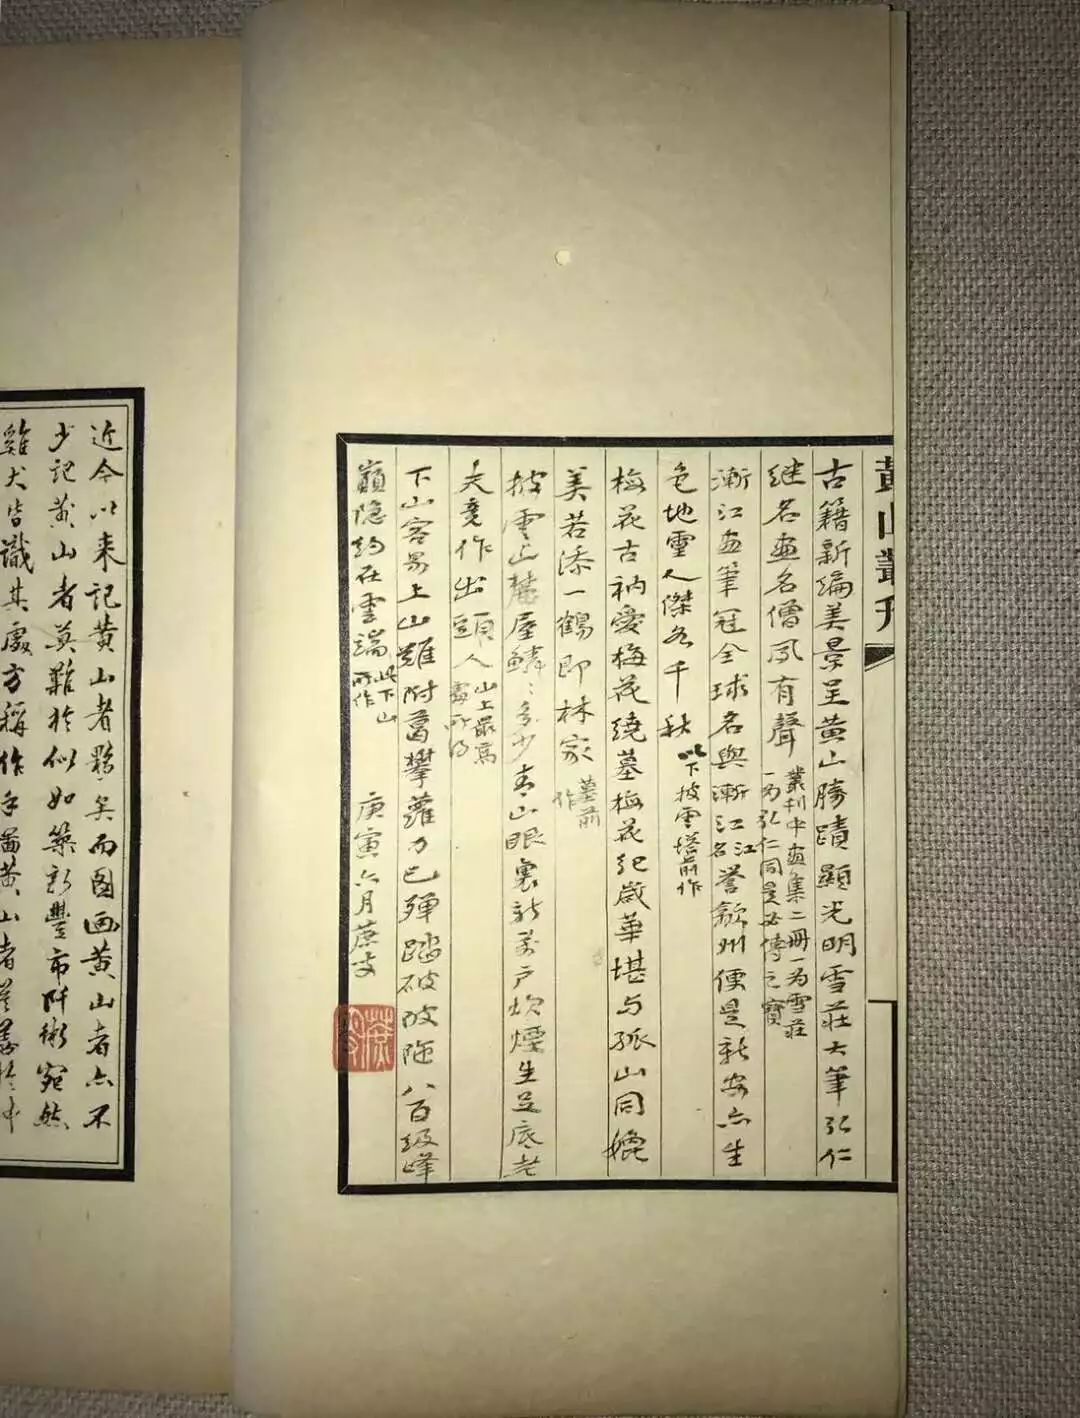 黃山叢刊
古籍新編美景呈黄山勝蹟顯光明雪莊大筆弘仁
继名畫名僧夙有聲
叢刊中畫集二冊一为雪莊
一为弘仁同是必傳之寶
漸江畫筆冠全球名與漸江江名譽歙州便是新安亦生
色地靈人傑各千秋
以下披雲塔前作
梅花古衲愛梅花繞墓梅花纪歲華堪与孤山同媲
美若添一鶴即林家
墓前作
披雲山麓屋鱗〻多少青山眼裏新萬户炊煙生足底老
夫竟作出頭人
山上最高
處所得
下山容易上山難附葛攀蘿力已殫踏破陂陁八百级峰
巔隐约在雲端
此下山
所作
庚寅六月
近今以来記黄山者夥矣而图画黄山者亦不
少記黄山者莫難於似如築新豐市阡術宛然
雞犬皆識其處方稱作手啚黄山者莫